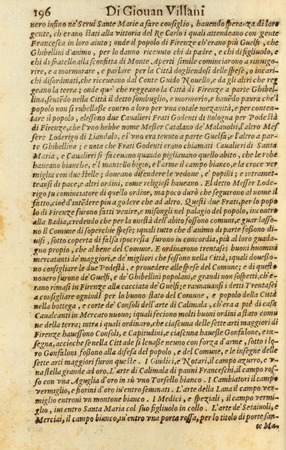 196 Di Giovan Villani
nero insino ne' Servi Sante Marie a fare consiglio, havendo speranza di loro
gente, ch'erano stati alla vittoria del Re Carlo; i quali attendeano con gente
Francesca in loro aiuto; onde il popolo di Firenze ch'erano più Guelfi, che
Ghibellini d'animo, per lo danno ricevuto chi di padre, e chi di figliuolo, e
chi di fratello alla sconfitta di Monte Aperti simile cominciarono a rinvigo-
rire, e a mormorare, e parlare per la Città dogliendosi delle spese, o incar-
chi disordinati, che ricevieno dal Conte Guido Novello, e da gli altri che reg-
geano la terra; onde que' che reggeano la Città di Firenze a parte Ghibel-
lina, sentendo nella Città il detto sombuglio, e mormorio, e havendo paura che'l
popolo non si rubellasse contro a loro per una cotale mezzanità, e per conten-
tare il popolo, elessono due Cavalieri Frati Godenti di Bologna per Podestà
di Firenze, che l'uno hebbe nome Messer di Malavolti, e l'altro Mes-
ser Lodorigo di Liandalo, e l'uno era tenuto a parte Guelfa, e l'altro a par-
te Ghibellina; e nota che Frati Godenti erano chiamati Cavalieri di Santa
Maria, e Cavalieri si facevano quando pigliavano quello abito, che le robe
haveano bianche, e'l mantello bigio, e l'arme il campo bianco, e la croce ver-
miglia con due stelle; e doveano difendere le vedove, e' pupilli; e intramet-
tersi di pace, e altri ordini, come religiosi haveano. E'l detto Messer Lode-
rigo fu cominciatore di quello ordine, ma poco durò che seguirono al nome il
fatto, cioè d'intendere più a godere che ad altro. Questi due Frati, per lo popo-
lo di Firenze furono fatti venire, e misongli nel palagio del popolo, incontro
alla Badia, credendo che per la onestà dell'abito fossono comuni, e guardasso-
no il Comune di soperchie spese; i quali tutto che d'animo di parte fossono di-
visi, sotto coperta di falsa ipocrisia furono in concordia, più al loro guada-
gno proprio, che al bene del Comune. E ordinarono trentasei buoni huomini
mercatanti de' maggiori, e de' migliori che fossono nella Città, i quali dovesso-
no consigliare le due Podestà, e provedere alle spese del Comune; e di questo
numero furono de' Guelfi, e de' Ghibellini popolani, e grandi non sospetti, ch'e-
rano rimasi in Firenze alla cacciata de' Guelfi; e raunavansi i detti Trentasei
a consigliare ognindì per lo buono stato del Comune, e popolo della Città
nella bottega, e corte de' Consoli dell'arte di Calimala, ch'era a piè di casa
Cavalcanti in Mercato nuovo; i quali fecino molti buoni ordini a stato comu-
ne della terra; infra i quali ordinaro, che ciascuna delle sette arti maggiori di
Firenze havessono Consoli, e Capitudini, e ciascuna havesse Gonfalone, e in-
segna, acciocche se nella Città se si levasse nemo con forza d'arme, sotto i lo-
ro Gonfaloni fossono alla difesa del popolo, e del Comune, e le insegne delle
sette arti maggiori furon queste. I Giudici, e Notari, il campo azzurro, e v-
na stella grande ad oro. L'arte di Calimala di panni Franceschi, il campo ros-
so con vna Aguglia d'oro in sù vno Torsello bianco. I Cambiatori il campo
vermiglio, e fiorini d'oro in entro seminati. L'arte della Lana il campo ver-
miglio, entroui vn montone bianco. I Medici, e speziali, il campo vermi-
glio, in entro Santa Maria col suo figliuolo in collo. L'arte de' Setaiuoli, e
Merciai, il campo bianco, in entro vna porta rossa, per lo titolo di porte san-
te Ma-